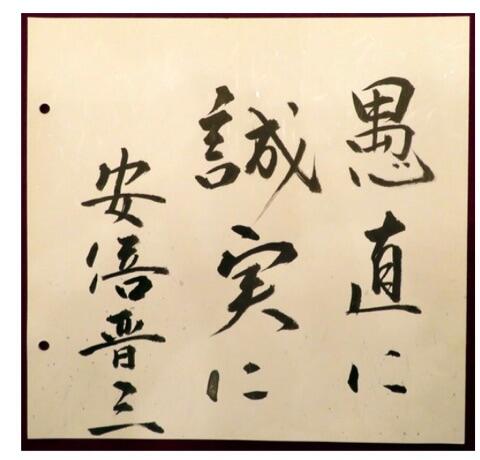 愚直に
誠実に
安倍晋三